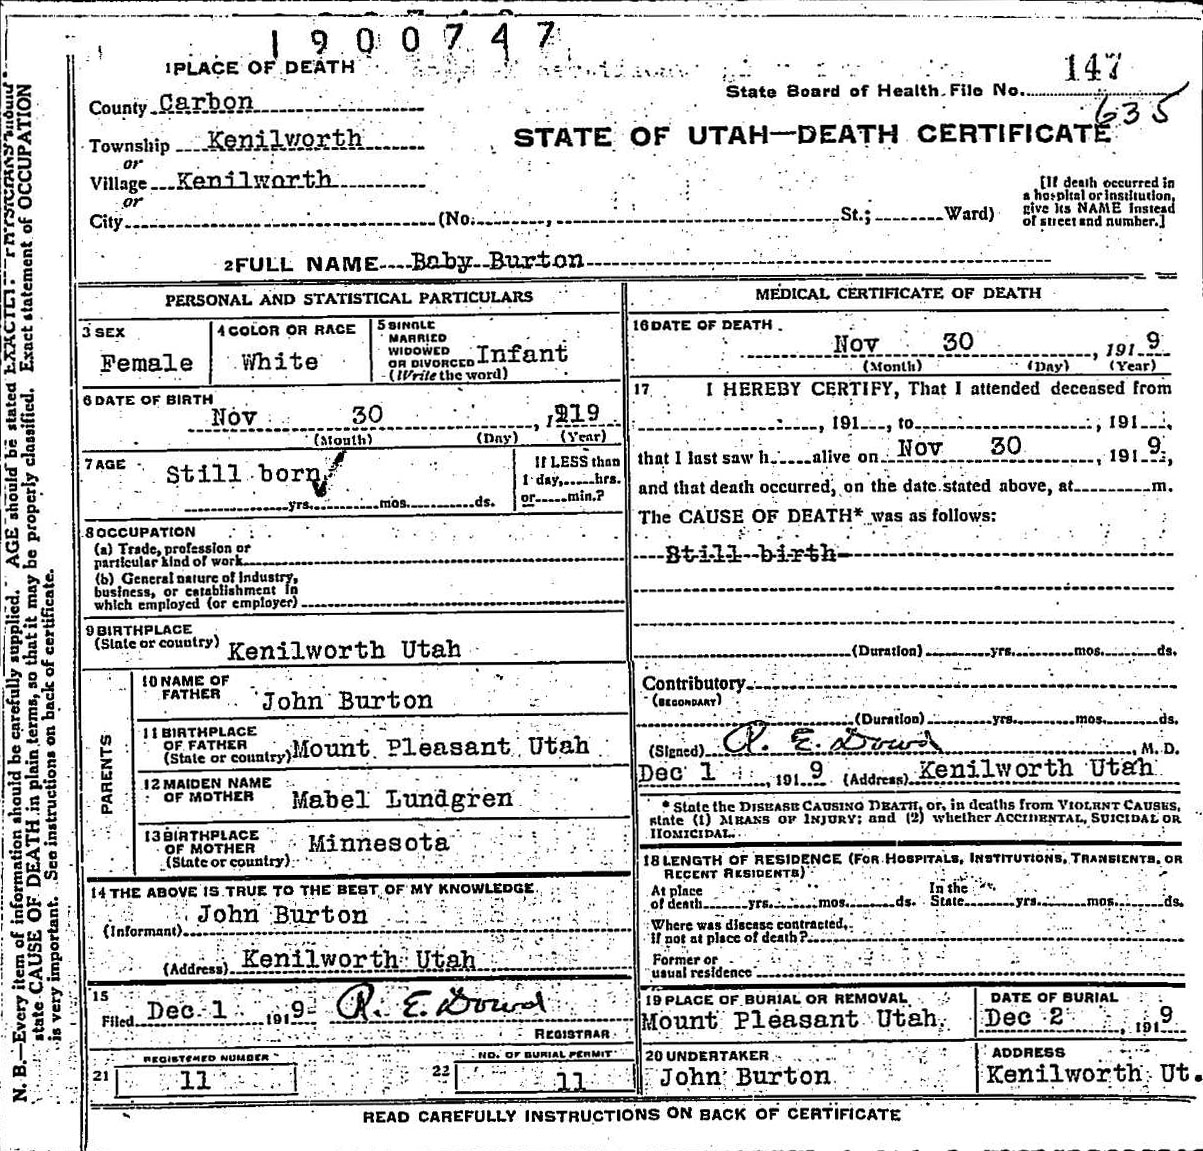 1900747
1 PLACE OF DEATH
147
State Board of Health File No.
635
County Carbon
STATE OF UTAH—DEATH CERTIFICATE
Township Kenilworth
or
Village Kenilworth
or
City (No. , St.; Ward)
[If death occurred in
a hospital or institution,
give its NAME instead
of street and number.]
2 FULL NAME Baby Burton
PERSONAL AND STATISTICAL PARTICULARS
3 SEX
Female
4 COLOR OR RACE
White
5 SINGLE
MARRIED
WIDOWED
OR DIVORCED Infant
(Write the word)
6 DATE OF BIRTH
Nov 30 , 1919
(Month) (Day) (Year)
7 AGE
Still born
yrs. mos. ds.
If LESS than
1 day, hrs.
or min.?
8 OCCUPATION
(a) Trade, profession or
particular kind of work
(b) General nature of industry,
business, or establishment in
which employed (or employer)
9 BIRTHPLACE
(State or country) Kenilworth Utah
PARENTS
10 NAME OF
FATHER John Burton
11 BIRTHPLACE
OF FATHER
(State or country) Mount Pleasant Utah
12 MAIDEN NAME
OF MOTHER Mabel Lundgren
13 BIRTHPLACE
OF MOTHER
(State or country) Minnesota
14 THE ABOVE IS TRUE TO THE BEST OF MY KNOWLEDGE
(Informant) John Burton
(Address) Kenilworth Utah
15
Filed Dec 1 1919 R. E. Dowd
REGISTRAR
REGISTERED NUMBER
21 11
NO. OF BURIAL PERMIT
22 11
MEDICAL CERTIFICATE OF DEATH
16 DATE OF DEATH
Nov 30 , 1919
(Month) (Day) (Year)
17 I HEREBY CERTIFY, That I attended deceased from
, 191 , to , 191 ,
that I last saw h alive on Nov 30 , 1919,
and that death occurred, on the date stated above, at m.
The CAUSE OF DEATH* was as follows:
Still birth
(Duration) yrs. mos. ds.
Contributory
(SECONDARY)
(Duration) yrs. mos. ds.
(Signed) R. E. Dowd , M. D.
Dec 1 , 1919 (Address) Kenilworth Utah
* State the DISEASE CAUSING DEATH, or, in deaths from VIOLENT CAUSES,
state (1) MEANS OF INJURY; and (2) whether ACCIDENTAL, SUICIDAL OR
HOMICIDAL.
18 LENGTH OF RESIDENCE (FOR HOSPITALS, INSTITUTIONS, TRANSIENTS, OR
RECENT RESIDENTS)
At place
of death yrs. mos. ds.
In the
State yrs. mos. ds.
Where was disease contracted,
if not at place of death?
Former or
usual residence
19 PLACE OF BURIAL OR REMOVAL
Mount Pleasant Utah
DATE OF BURIAL
Dec 2 , 1919
20 UNDERTAKER
John Burton
ADDRESS
Kenilworth Ut.
READ CAREFULLY INSTRUCTIONS ON BACK OF CERTIFICATE
N. B.—Every item of information should be carefully supplied. AGE should be stated EXACTLY. PHYSICIANS should
state CAUSE OF DEATH in plain terms, so that it may be properly classified. Exact statement of OCCUPATION
is very important. See instructions on back of certificate.